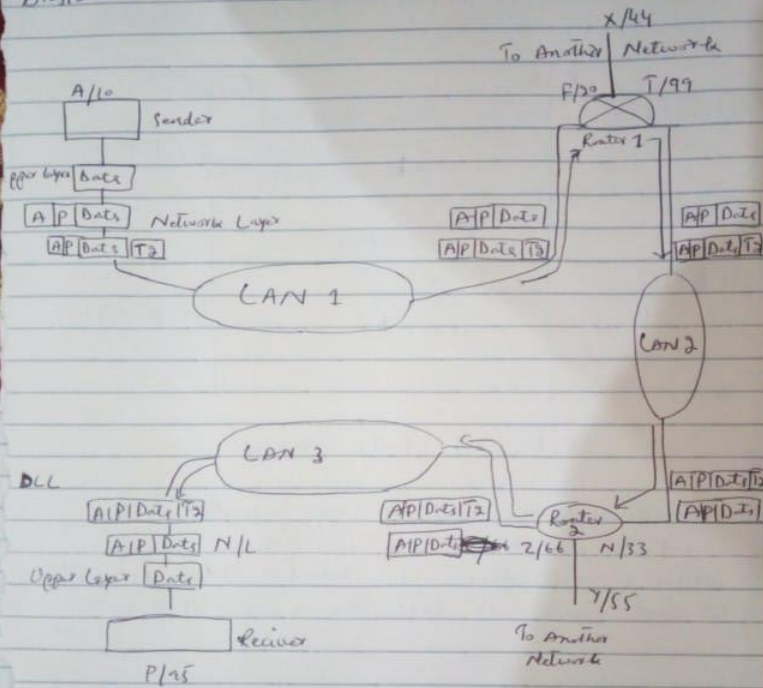 X/44
To Another Network
A/10
F/20 T/99
Sender
Router 1
pper Layer Data
A P Data Network Layer
A P Data T2
A P Data
A P Data T2
A P Data
A P Data T2
LAN 1
LAN 2
LAN 3
DLL
A P Data T2
A P Data N/L
Upper Layer Data
Reciver
A P Data T2
A P Data
Router 2
Z/66 N/33
A P Data T2
A P Data
Y/55
To Another
Network